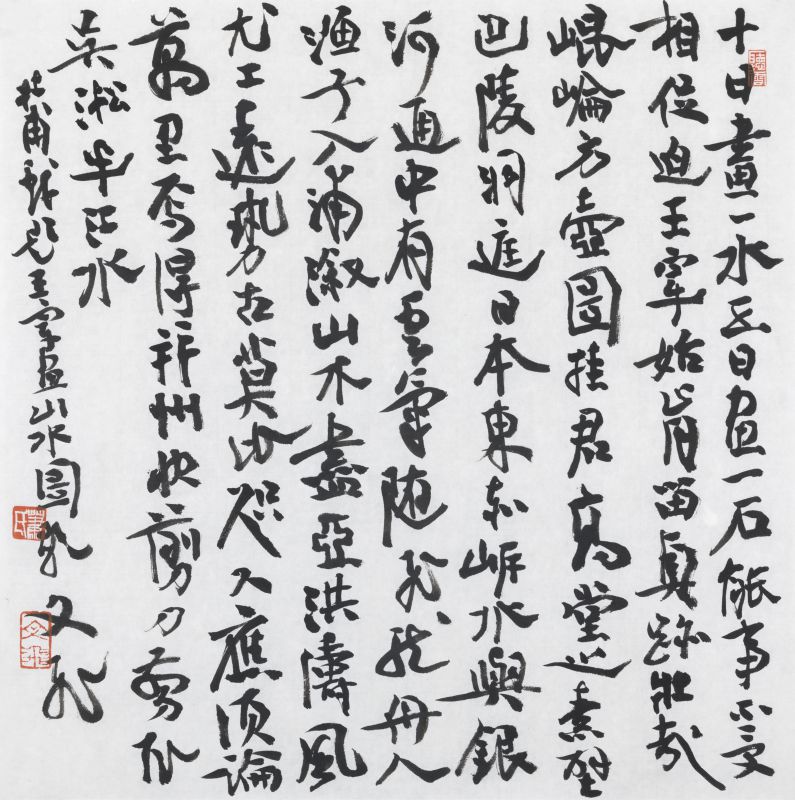 十日畫一水五日画一石能事不受
相促迫王宰始肯留眞跡壯哉
崐崘方壺圖挂君高堂之素壁
巴陵洞庭日本東赤岸水與銀
河通中有雲氣随飛龍舟人
漁子入浦漵山木盡亞洪濤風
尤工遠勢古莫比咫尺應須論
萬里焉得并州快剪刀剪取
吳淞半江水
杜甫戲題王宰画山水圖歌 文飛
蕭氏
文飛